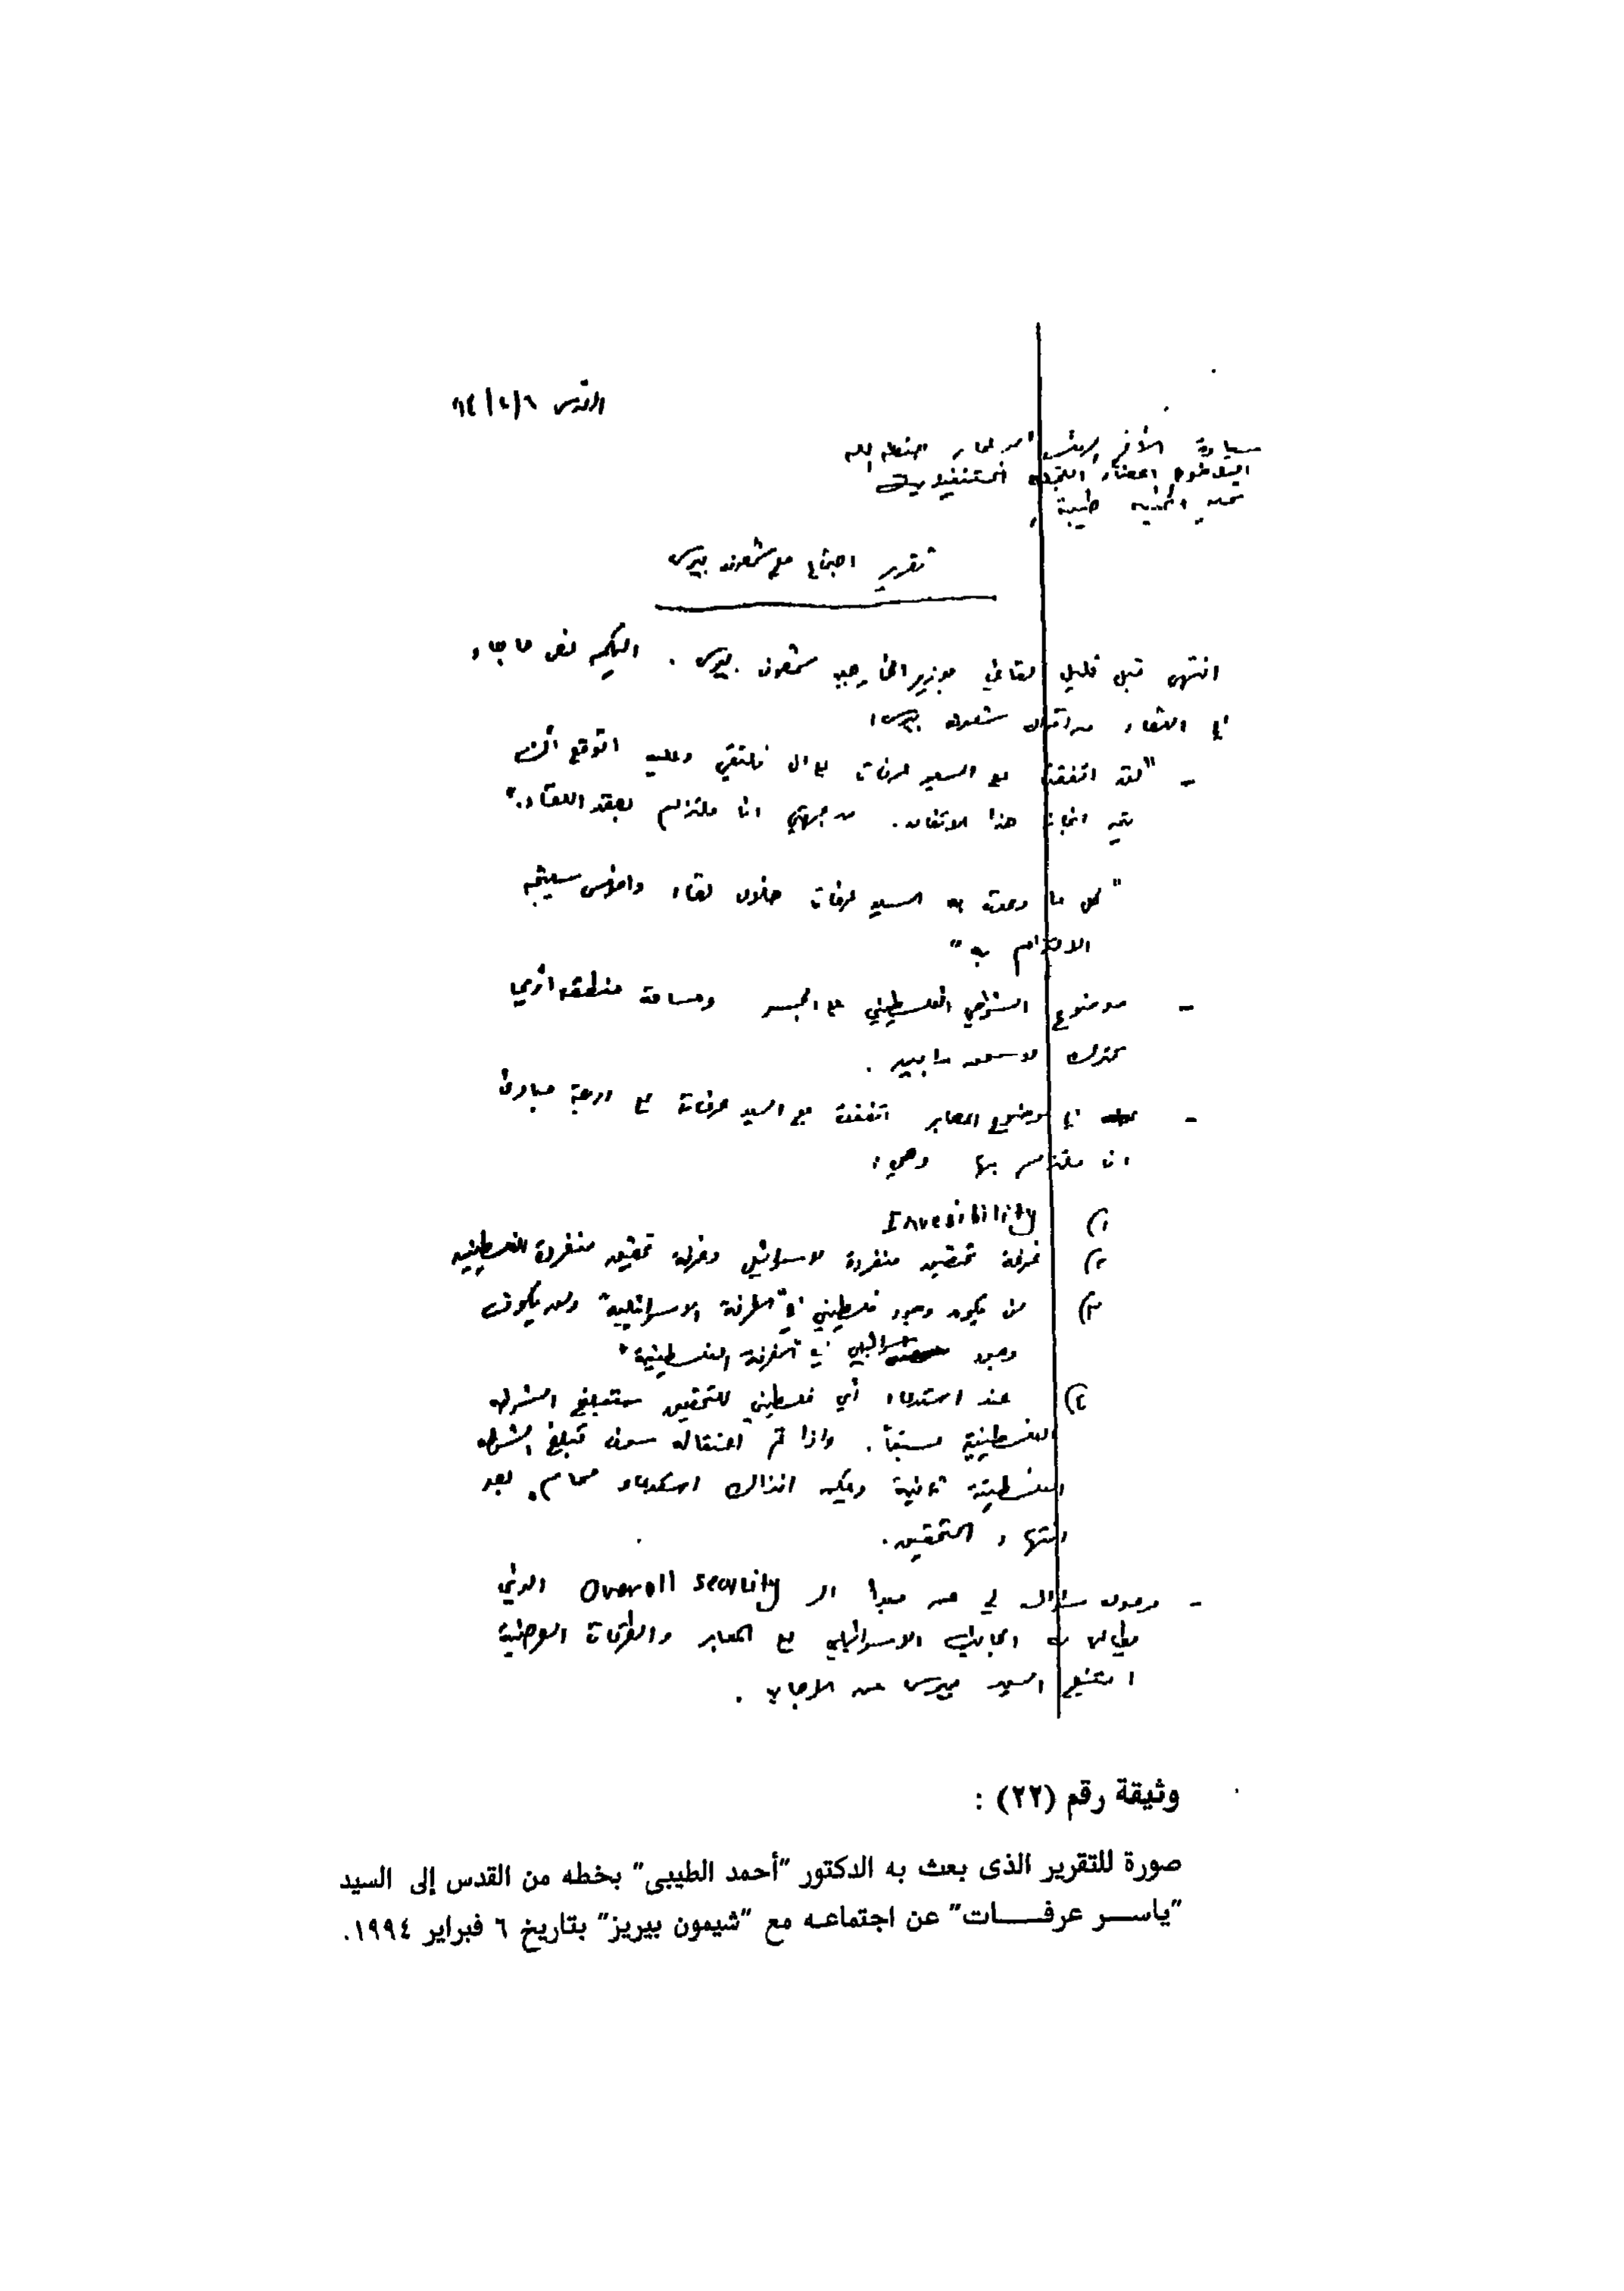 القدس ٦/٢/٩٤
سيادة الأخ الرئيس ابو عمار حفظه الله
الاخوة اعضاء اللجنة التنفيذية
تحية وطنية طيبة ,
تقرير اجتماع مع شمعون بيرس
انتهى قبل قليل لقائي بوزير الخارجية شمعون بيرس . اليكم نص ما جاء
في اللقاء من اقوال شمعون بيرس :
- "لقد اتفقنا مع السيد عرفات على ان نلتقي وعليه اتوقع أن
يتم انجاز هذا الاتفاق. من جهتي انا ملتزم بعقد اللقاء."
"كل ما وعدت به السيد عرفات خلال لقاء دافوس سيتم
الالتزام به"
- موضوع الشرطي الفلسطيني على الجسر ومساحة منطقة أريحا
يترك
- في موضوع المعابر اتفقت مع السيد عرفات على اربعة مبادئ
انا ملتزم بها وهي :
١) Invesibility
٢) غرفة تحقيق منفردة لاسرائيل وغرفة تحقيق منفردة للفلسطينيين
٣) لن يكون وجود فلسطيني في "الغرفة الاسرائيلية" ولن يكون
وجود اسرائيلي في "الغرفة الفلسطينية"
٤) عند استدعاء أي فلسطيني للتحقيق ستبلغ الشرطة
الفلسطينية مسبقاً. واذا تم اعتقاله سوف تبلغ الشرطة
الفلسطينية ثانية ويمكن انذاك استدعاء محامي بعد
انتهاء التحقيق.
- وحول سؤال لي عن مبدأ الـ Overall security الذي
يطالب به الجانب الاسرائيلي في المعابر والطرقات العرضية
امتنع السيد بيرس عن الاجابة .
وثيقة رقم (٢٢) :
صورة للتقرير الذى بعث به الدكتور "أحمد الطيبى" بخطه من القدس إلى السيد
"ياســر عرفــــات" عن اجتماعـه مع "شيمون بيريز" بتاريخ ٦ فبراير ١٩٩٤.